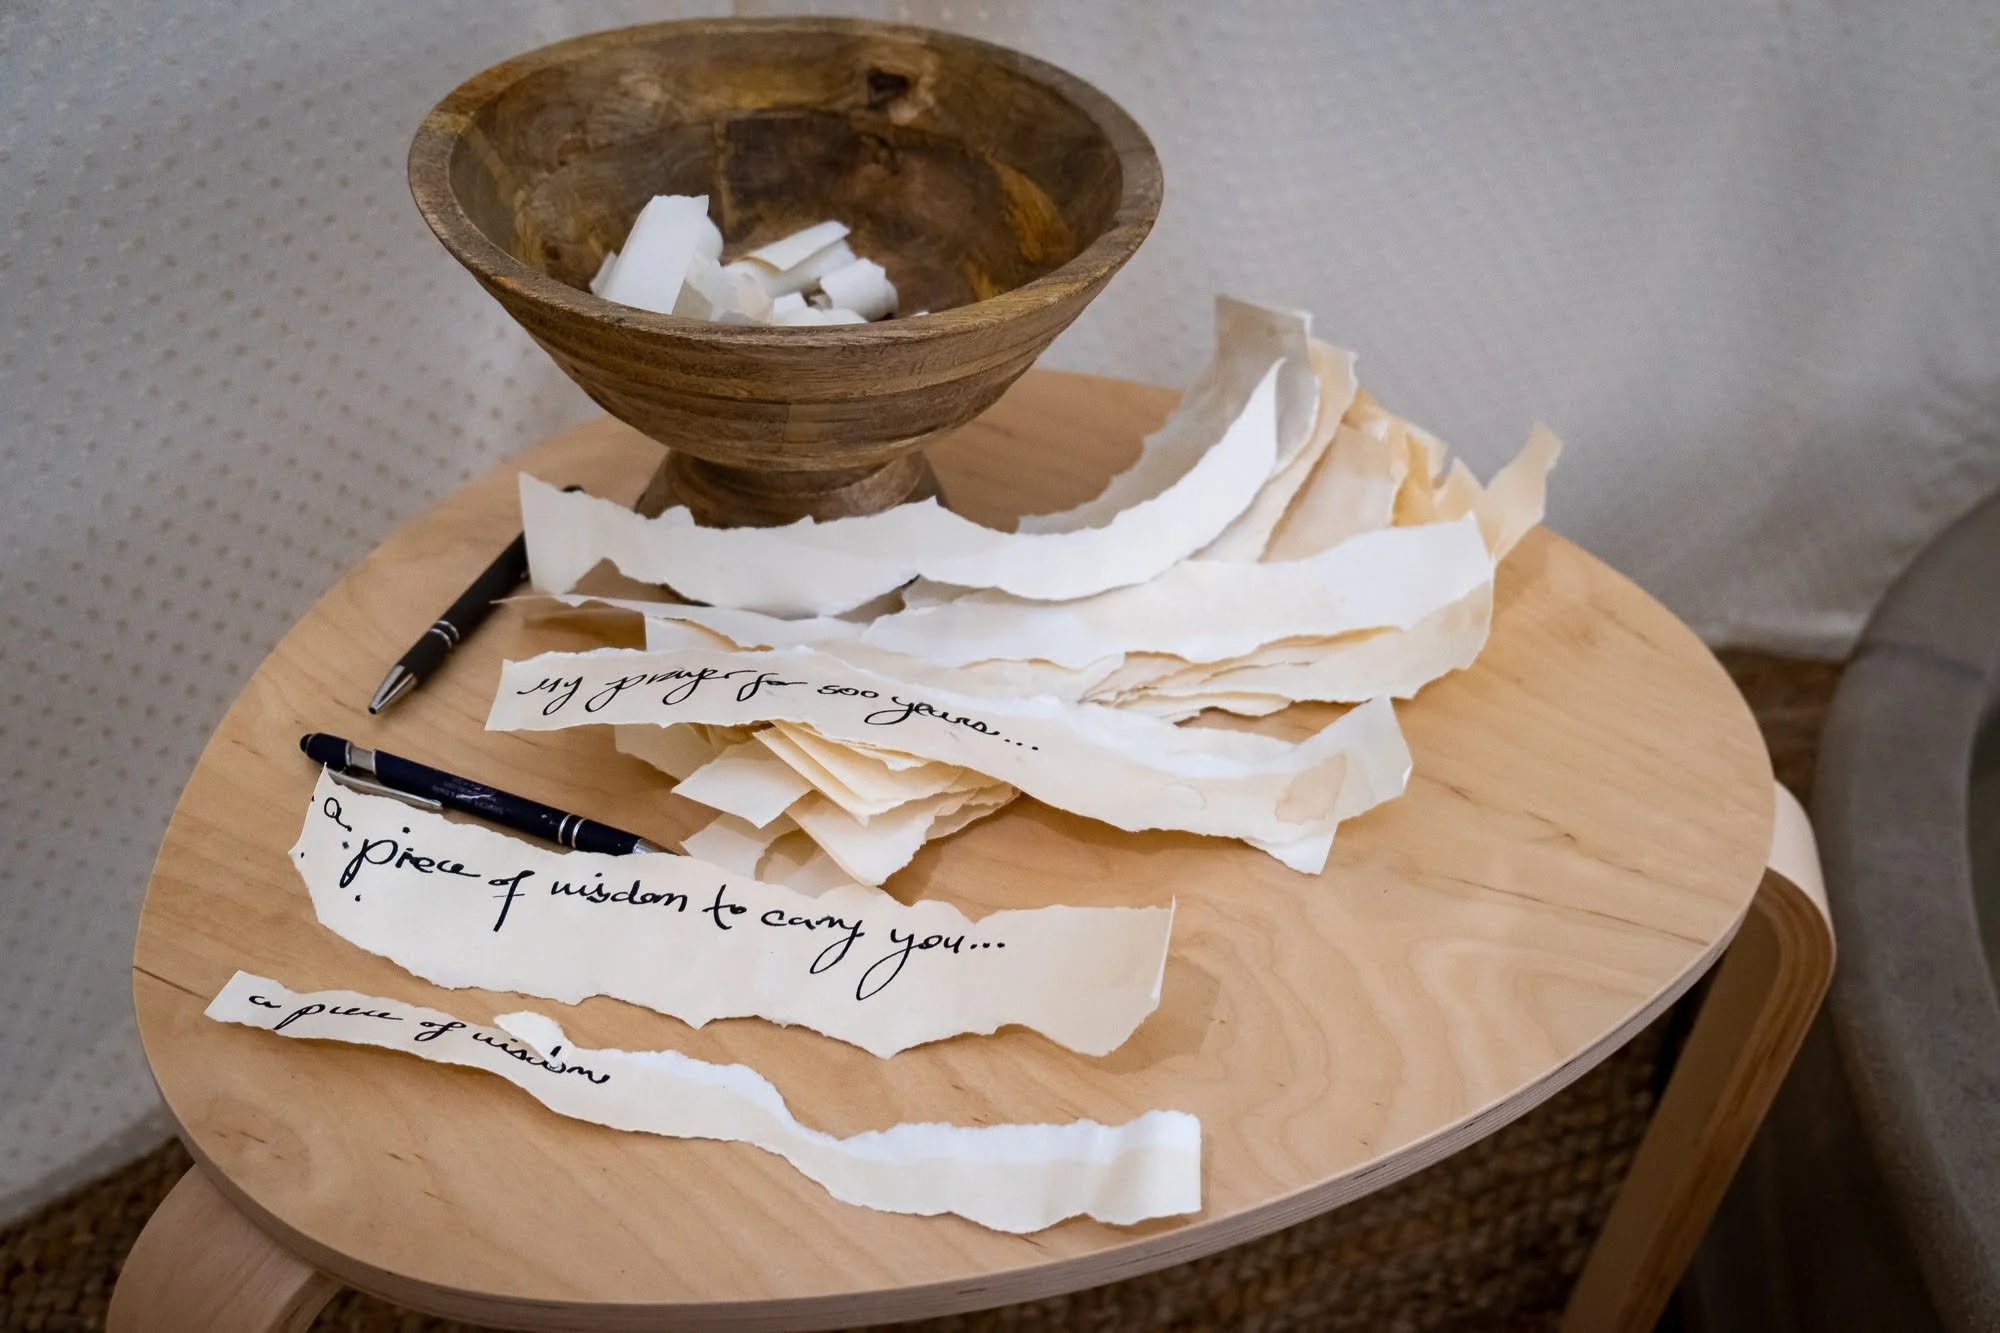 My prayer for 500 years...
a piece of wisdom to carry you...
a piece of wisdom